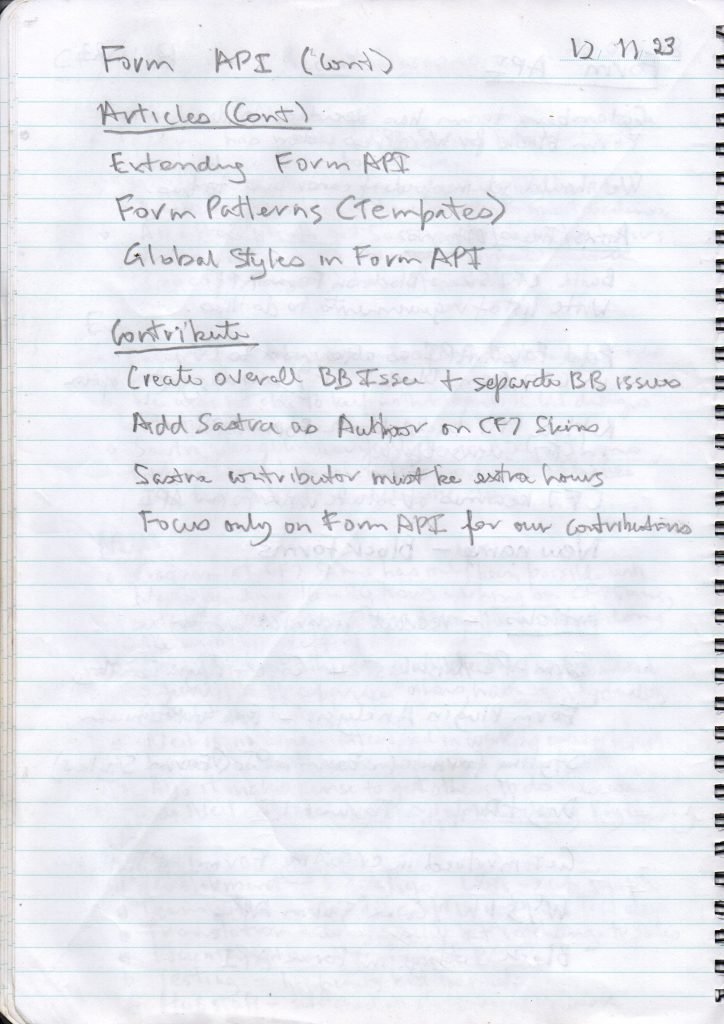 12 11 23
Form API (Cont)
Articles (Cont)
Extending Form API
Form Patterns (Tempates)
Global Styles in Form API
Contribute
Create overall BB Issue + separate BB issues
Add Sastra as Author on CF7 Skins
Sastra contributor must be extra hours
Focus only on Form API for our contributions